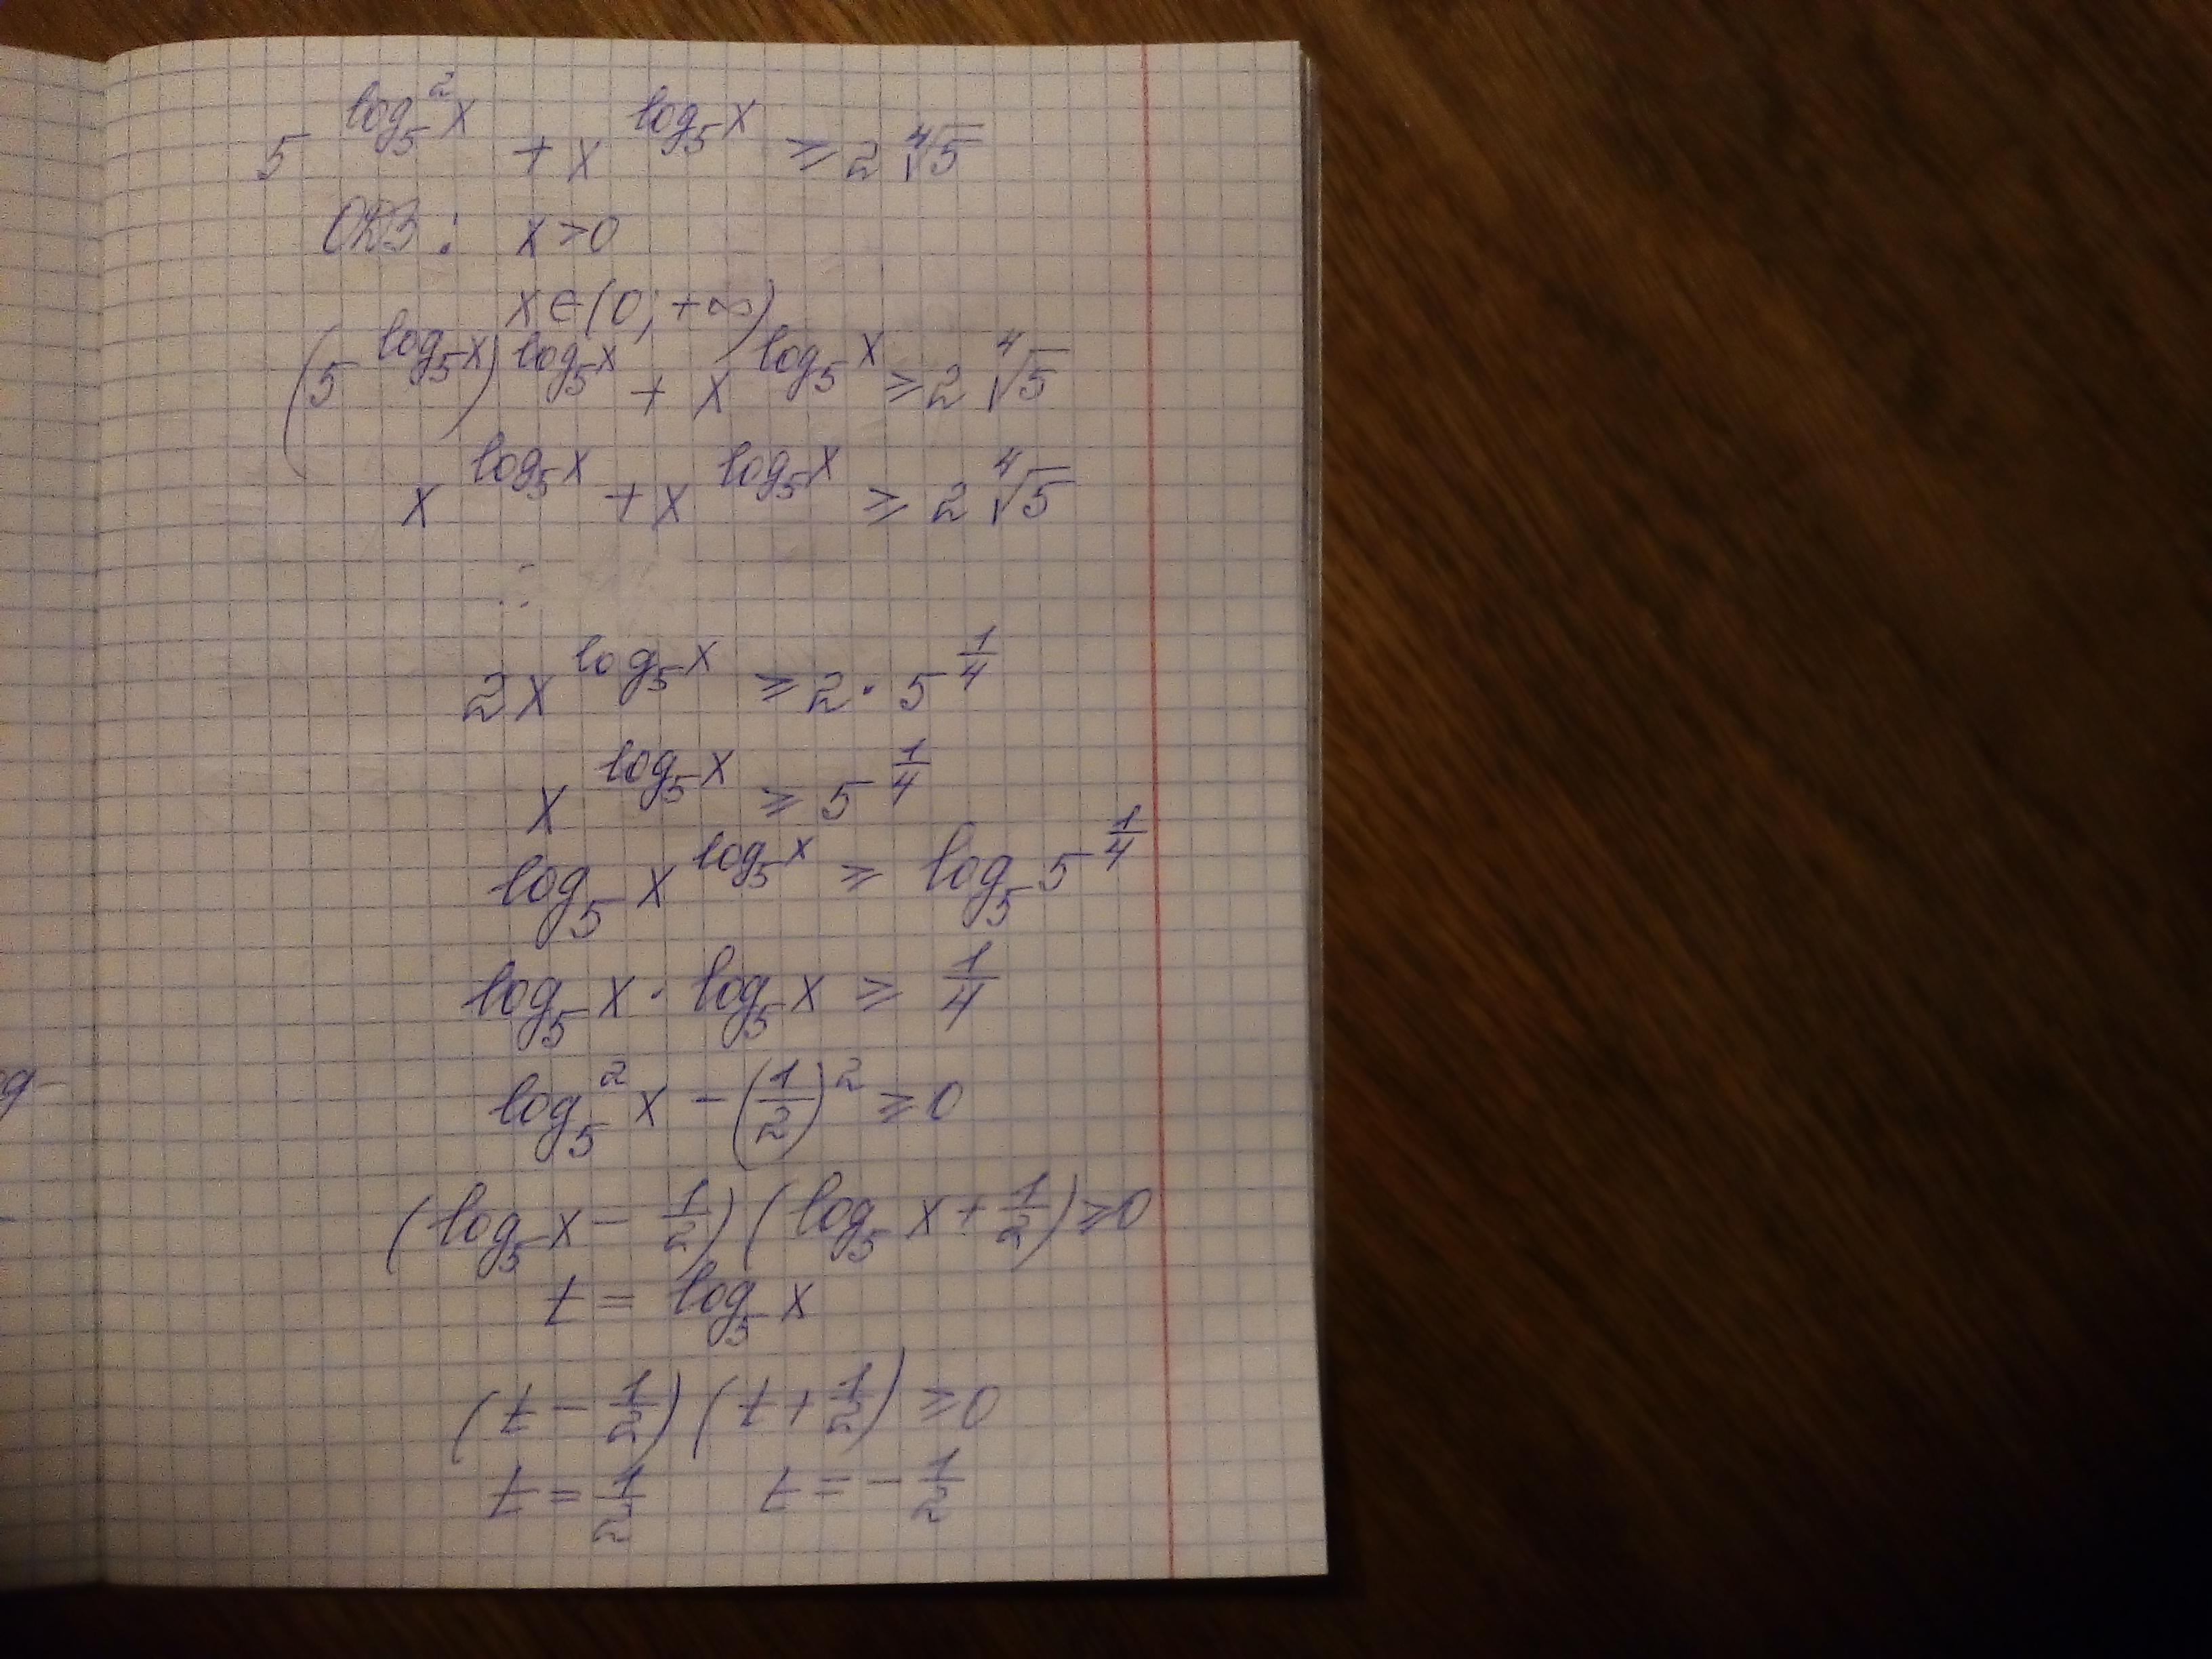 5^{log_5^2 x} + x^{log_5 x} ≥ 2 ∜5
ОДЗ : x > 0
x ∈ (0; +∞)
(5^{log_5 x})^{log_5 x} + x^{log_5 x} ≥ 2 ∜5
x^{log_5 x} + x^{log_5 x} ≥ 2 ∜5
2x^{log_5 x} ≥ 2 · 5^{1/4}
x^{log_5 x} ≥ 5^{1/4}
log_5 x^{log_5 x} ≥ log_5 5^{1/4}
log_5 x · log_5 x ≥ 1/4
log_5^2 x − (1/2)^2 ≥ 0
(log_5 x − 1/2) (log_5 x + 1/2) ≥ 0
t = log_5 x
(t − 1/2) (t + 1/2) ≥ 0
t = 1/2 t = − 1/2